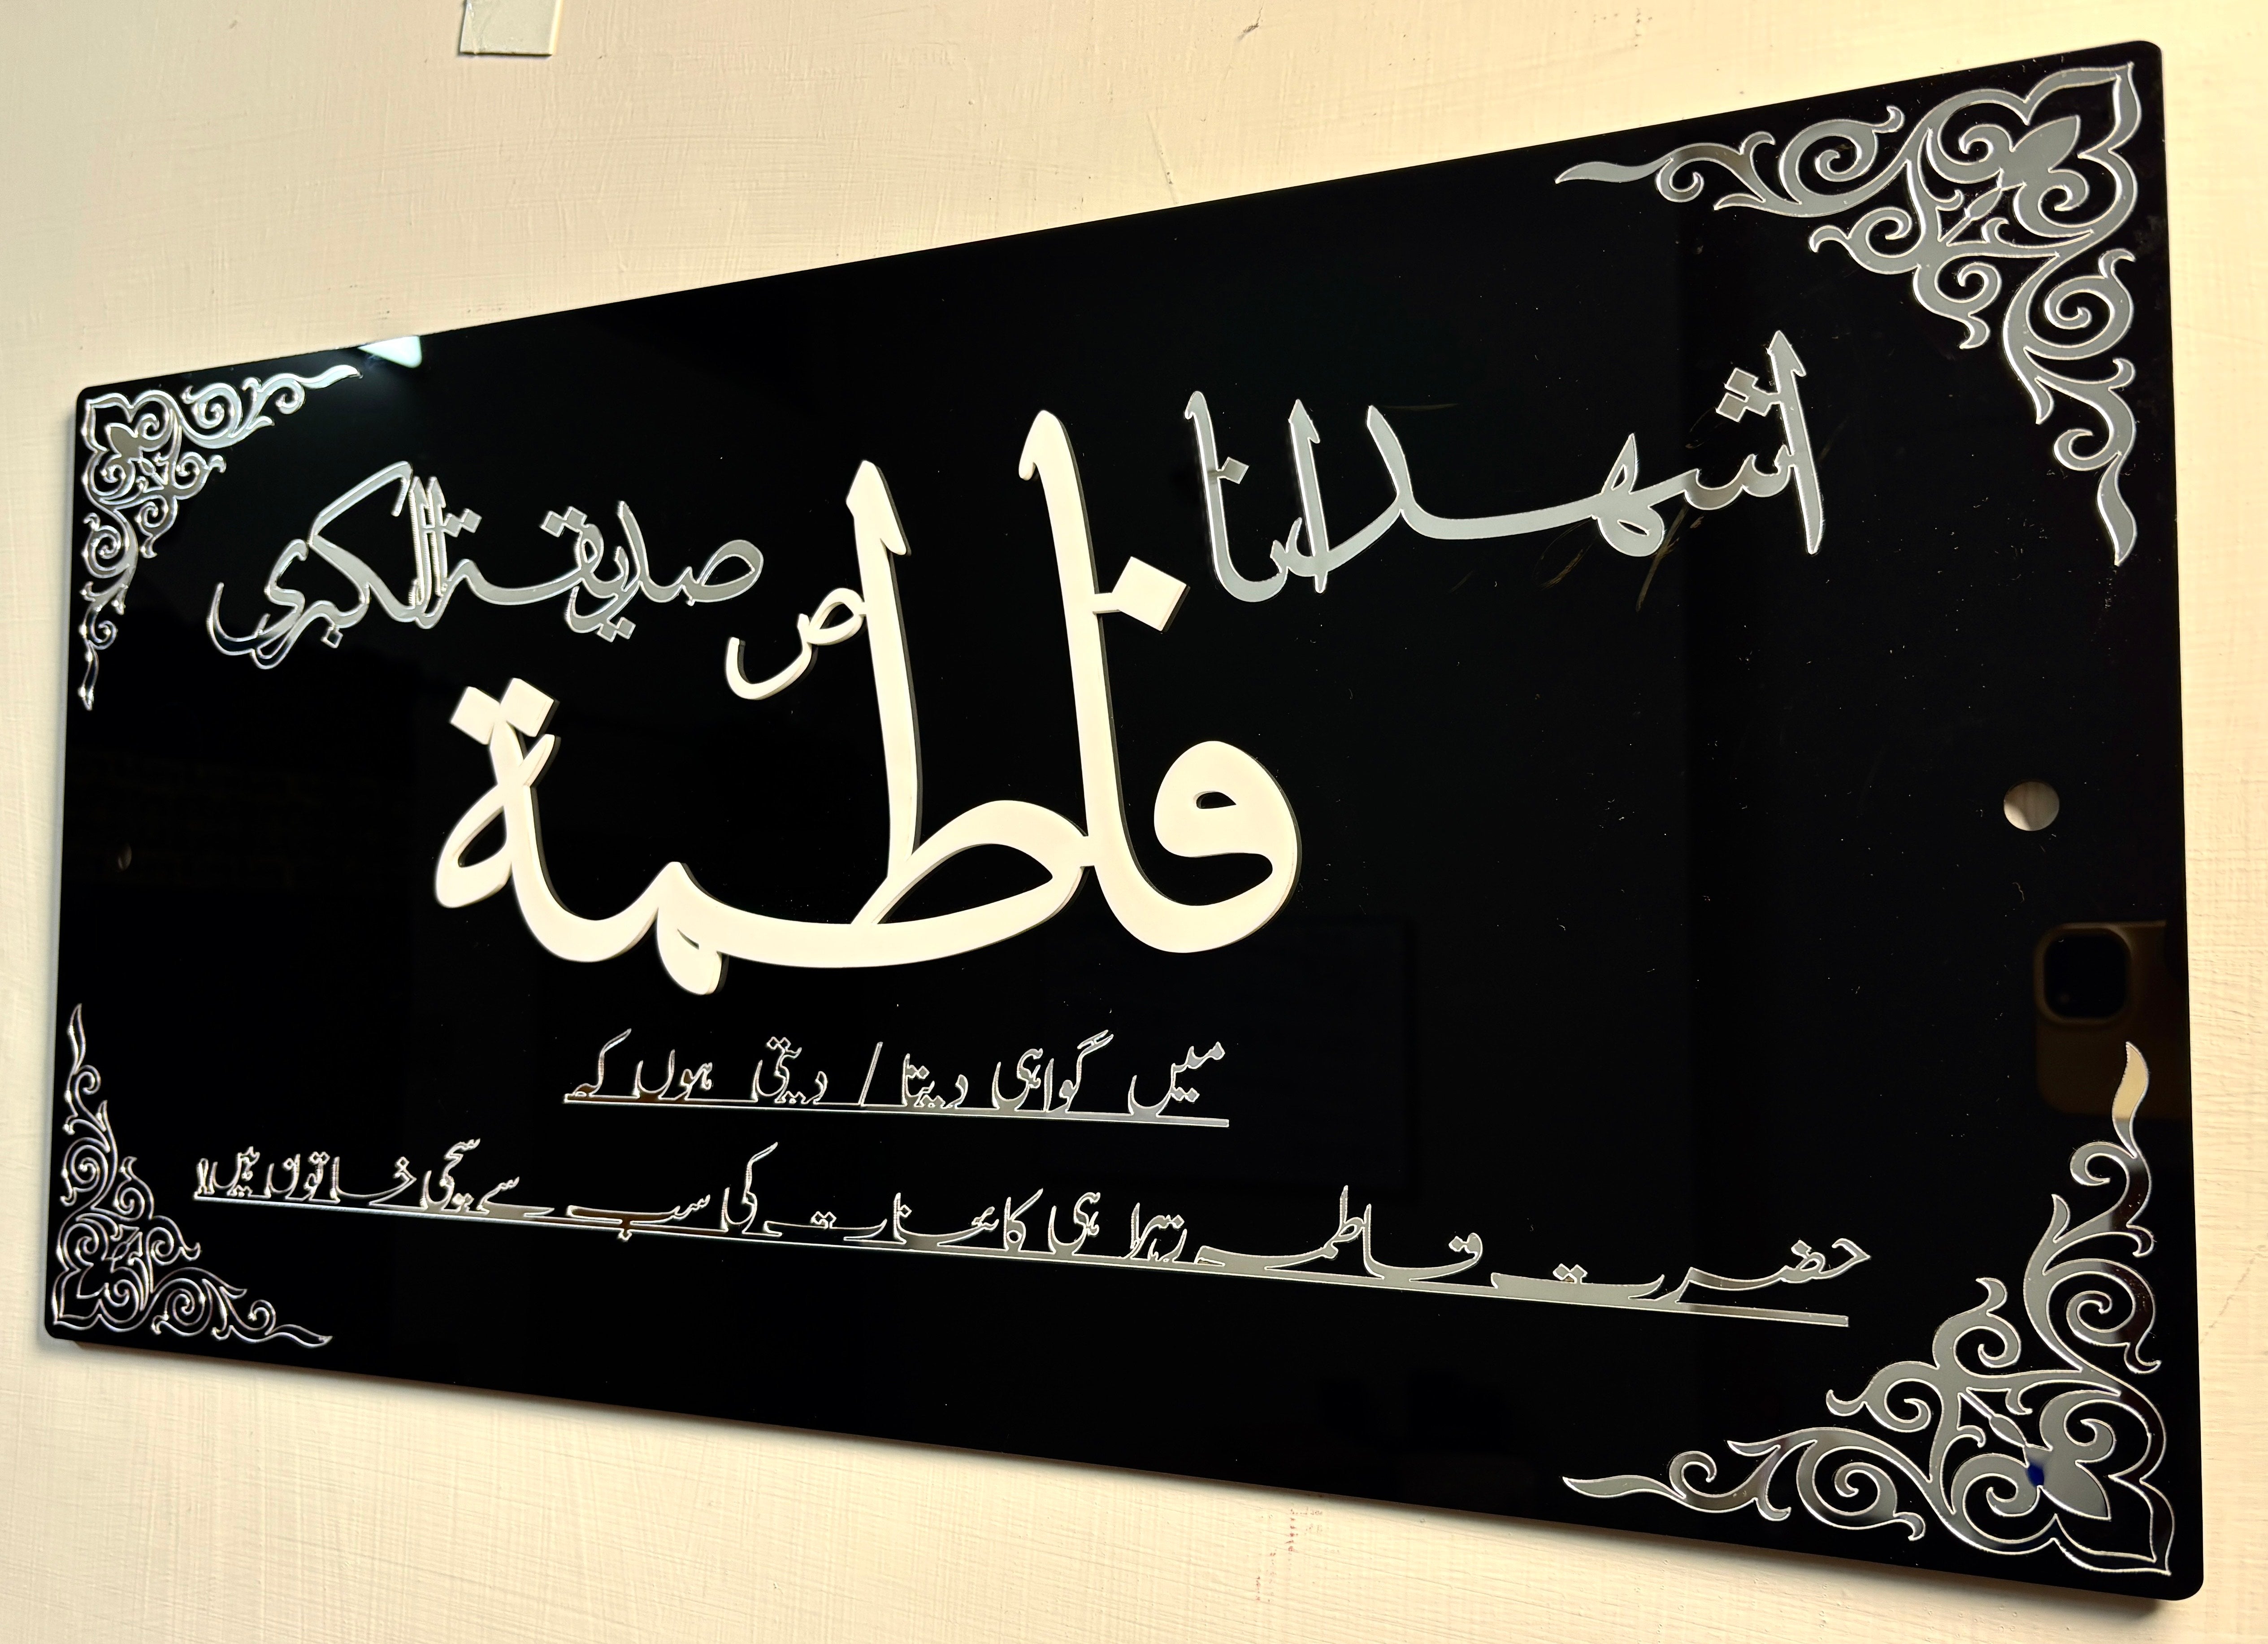 اشهد انا
فاطمة ص
صديقة الكبرى
میں گواہی دیتا / دیتی ہوں کہ
حضرت فاطمہ زہرا ہی کائنات کی سب سے سچی خاتون ہیں!